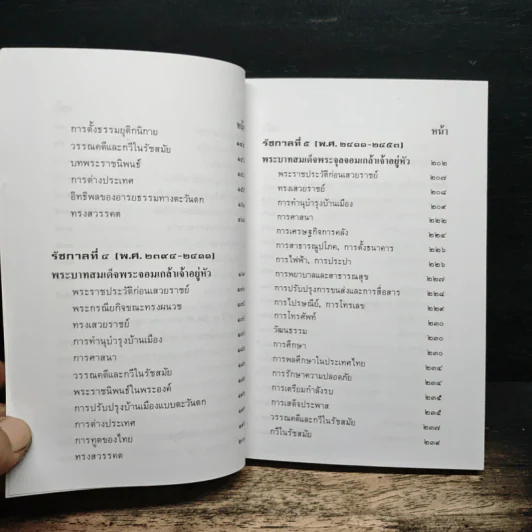 การตั้งธรรมยุติกนิกาย
วรรณคดีและกวีในรัชสมัย
บทพระราชนิพนธ์
การต่างประเทศ
อิทธิพลของอารยธรรมทางตะวันตก
ทรงสวรรคต
รัชกาลที่ ๔ (พ.ศ. ๒๓๙๔-๒๔๑๑)
พระบาทสมเด็จพระจอมเกล้าเจ้าอยู่หัว
พระราชประวัติก่อนเสวยราชย์
พระกรณียกิจขณะทรงผนวช
ทรงเสวยราชย์
การทำนุบำรุงบ้านเมือง
การศาสนา
วรรณคดีและกวีในรัชสมัย
พระราชนิพนธ์ในพระองค์
การปรับปรุงบ้านเมืองแบบตะวันตก
การต่างประเทศ
การทูตของไทย
ทรงสวรรคต
หน้า
รัชกาลที่ ๕ (พ.ศ. ๒๔๑๑-๒๔๕๓)
พระบาทสมเด็จพระจุลจอมเกล้าเจ้าอยู่หัว ๒๐๒
พระราชประวัติก่อนเสวยราชย์ ๒๐๗
ทรงเสวยราชย์ ๒๐๔
การทำนุบำรุงบ้านเมือง ๒๐๙
การศาสนา ๒๒๒
การเศรษฐกิจการคลัง ๒๒๔
การสาธารณูปโภค, การตั้งธนาคาร ๒๒๖
การไฟฟ้า, การประปา ๒๒๗
การพยาบาลและสาธารณสุข ๒๒๗
การปรับปรุงการขนส่งและการสื่อสาร ๒๒๘
การไปรษณีย์, การโทรเลข ๒๒๙
การโทรศัพท์ ๒๓๐
วัฒนธรรม ๒๓๐
การศึกษา ๒๓๐
การพลศึกษาในประเทศไทย ๒๓๔
การรักษาความปลอดภัย ๒๓๔
การเตรียมกำลังรบ ๒๓๕
การเสด็จประพาส ๒๓๕
วรรณคดีและกวีในรัชสมัย ๒๓๗
กวีในรัชสมัย ๒๓๙